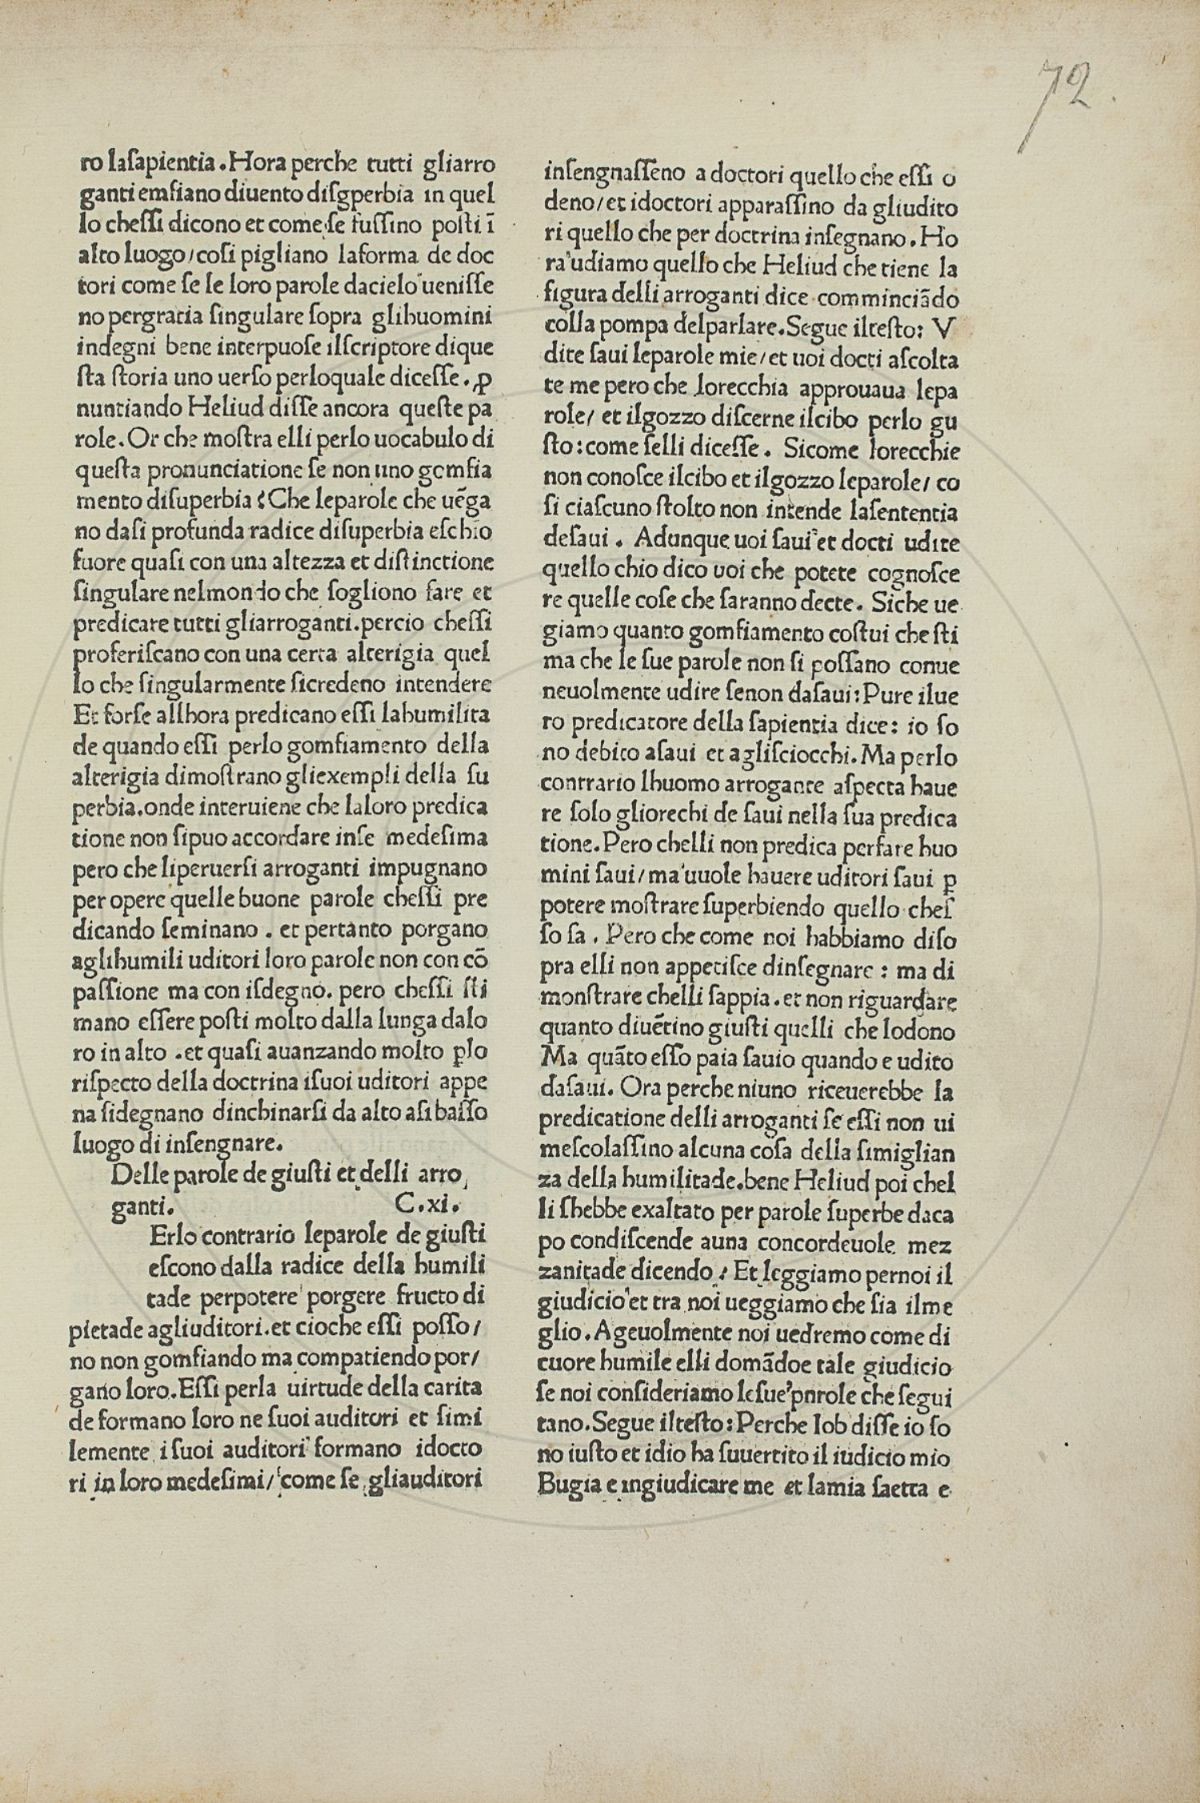 72.
ro laſapientia. Hora perche tutti gliarro
ganti emfiano diuento diſgperbia in quel
lo cheſſi dicono et come ſe fuſſino poſti ī
alto luogo/coſi pigliano laforma de doc
tori come ſe le loro parole dacielo ueniſſe
no pergratia ſingulare ſopra glihuomini
indegni bene interpuoſe ilſcriptore dique
ſta ſtoria uno uerſo perloquale diceſſe. ꝓ
nuntiando Heliud diſſe ancora queſte pa
role. Or che moſtra elli perlo uocabulo di
queſta pronunciatione ſe non uno gomfia
mento diſuperbia? Che leparole che uēga
no daſi profunda radice diſuperbia eſchio
fuore quaſi con una altezza et diſtinctione
ſingulare nelmondo che ſogliono fare et
predicare tutti gliarroganti. percio cheſſi
proferiſcano con una certa alterigia quel
lo che ſingularmente ſicredeno intendere
Et forſe allhora predicano eſſi lahumilita
de quando eſſi perlo gomfiamento della
alterigia dimoſtrano gliexempli della ſu
perbia. onde interuiene che laloro predica
tione non ſipuo accordare inſe medeſima
pero che liperuerſi arroganti impugnano
per opere quelle buone parole cheſſi pre
dicando ſeminano. et pertanto porgano
aglihumili uditori loro parole non con cō
paſſione ma con iſdegno. pero cheſſi ſti
mano eſſere poſti molto dalla lunga dalo
ro in alto. et quaſi auanzando molto ꝑlo
riſpecto della doctrina iſuoi uditori appe
na ſidegnano dinchinarſi da alto aſi baſſo
luogo di inſengnare.
Delle parole de giuſti et delli arro,
ganti. C.xi.
Erlo contrario leparole de giuſti
eſcono dalla radice della humili
tade perpotere porgere fructo di
pietade agliuditori. et cioche eſſi poſſo/
no non gomfiando ma compatiendo por/
gano loro. Eſſi perla uirtude della carita
de formano loro ne ſuoi auditori et ſimi
lemente i ſuoi auditori formano idocto
ri in loro medeſimi/ come ſe gliauditori
inſengnaſſeno a doctori quello che eſſi o
deno/et idoctori apparaſſino da gliudito
ri quello che per doctrina inſegnano. Ho
ra udiamo quello che Heliud che tiene la
figura delli arroganti dice comminciādo
colla pompa delparlare. Segue ilteſto: V
dite ſaui leparole mie/et uoi docti aſcolta
te me pero che lorecchia approuaua lepa
role/ et ilgozzo diſcerne ilcibo perlo gu
ſto: come ſelli diceſſe. Sicome lorecchie
non conoſce ilcibo et ilgozzo leparole/ co
ſi ciaſcuno ſtolto non intende laſententia
deſaui. Adunque uoi ſaui et docti udite
quello chio dico uoi che potete cognoſce
re quelle coſe che ſaranno decte. Siche ue
giamo quanto gomfiamento coſtui che ſti
ma che le ſue parole non ſi poſſano conue
neuolmente udire ſenon daſaui: Pure ilue
ro predicatore della ſapientia dice: io ſo
no debito aſaui et agliſciocchi. Ma perlo
contrario lhuomo arrogante aſpecta haue
re ſolo gliorechi de ſaui nella ſua predica
tione. Pero chelli non predica perfare huo
mini ſaui/ ma uuole hauere uditori ſaui ꝑ
potere moſtrare ſuperbiendo quello cheſ
ſo ſa. Pero che come noi habbiamo diſo
pra elli non appetiſce dinſegnare: ma di
monſtrare chelli ſappia. et non riguardare
quanto diuētino giuſti quelli che lodono
Ma quāto eſſo paia ſauio quando e udito
daſaui. Ora perche niuno riceuerebbe la
predicatione delli arroganti ſe eſſi non ui
meſcolaſſino alcuna coſa della ſimiglian
za della humilitade. bene Heliud poi chel
li ſhebbe exaltato per parole ſuperbe daca
po condiſcende auna concordeuole mez
zanitade dicendo: Et leggiamo pernoi il
giudicio et tra noi ueggiamo che ſia ilme
glio. Ageuolmente noi uedremo come di
cuore humile elli domādoe tale giudicio
ſe noi conſideriamo leſue pnrole che ſegui
tano. Segue ilteſto: Perche Iob diſſe io ſo
no iuſto et idio ha ſuuertito il iudicio mio
Bugia e ingiudicare me et lamia ſaetta e